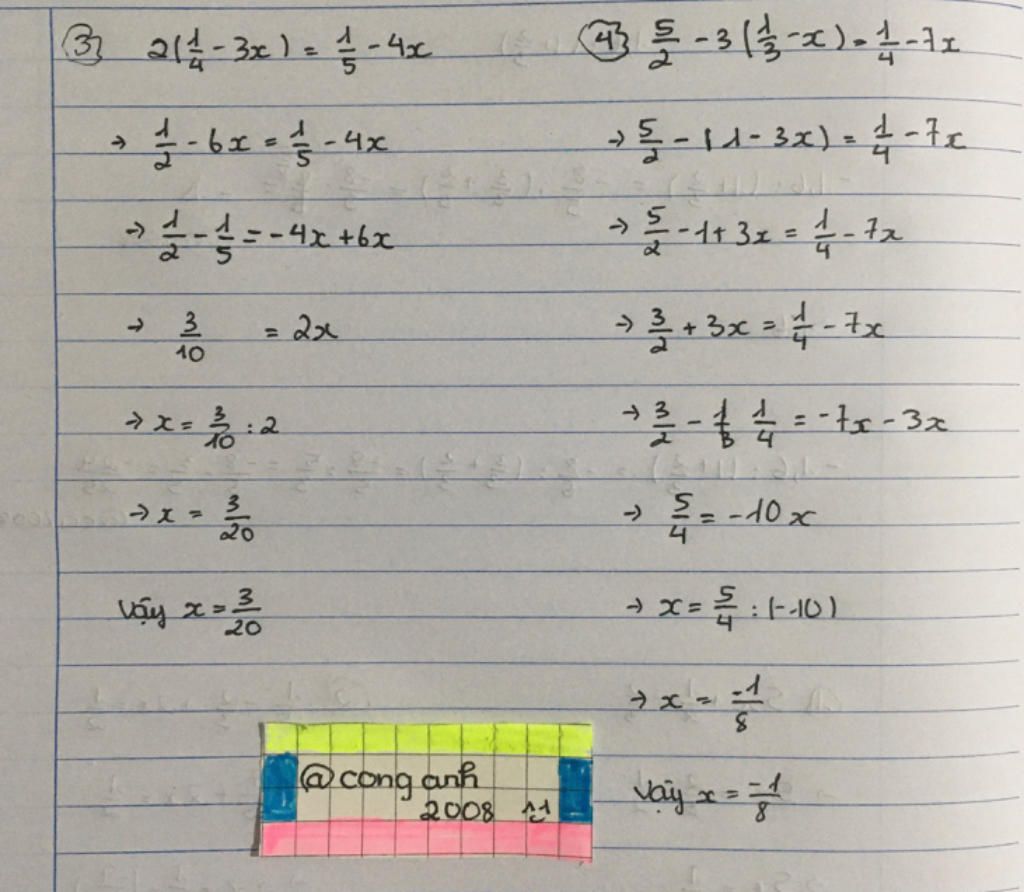 3) 2(1/4 - 3x) = 1/5 - 4x
→ 1/2 - 6x = 1/5 - 4x
→ 1/2 - 1/5 = -4x + 6x
→ 3/10 = 2x
→ x = 3/10 : 2
→ x = 3/20
Vậy x = 3/20
4) 5/2 - 3(1/3 - x) = 1/4 - 7x
→ 5/2 - (1 - 3x) = 1/4 - 7x
→ 5/2 - 1 + 3x = 1/4 - 7x
→ 3/2 + 3x = 1/4 - 7x
→ 3/2 - 1/4 = -7x - 3x
→ 5/4 = -10x
→ x = 5/4 : (-10)
→ x = -1/8
Vậy x = -1/8
@cong anh
2008